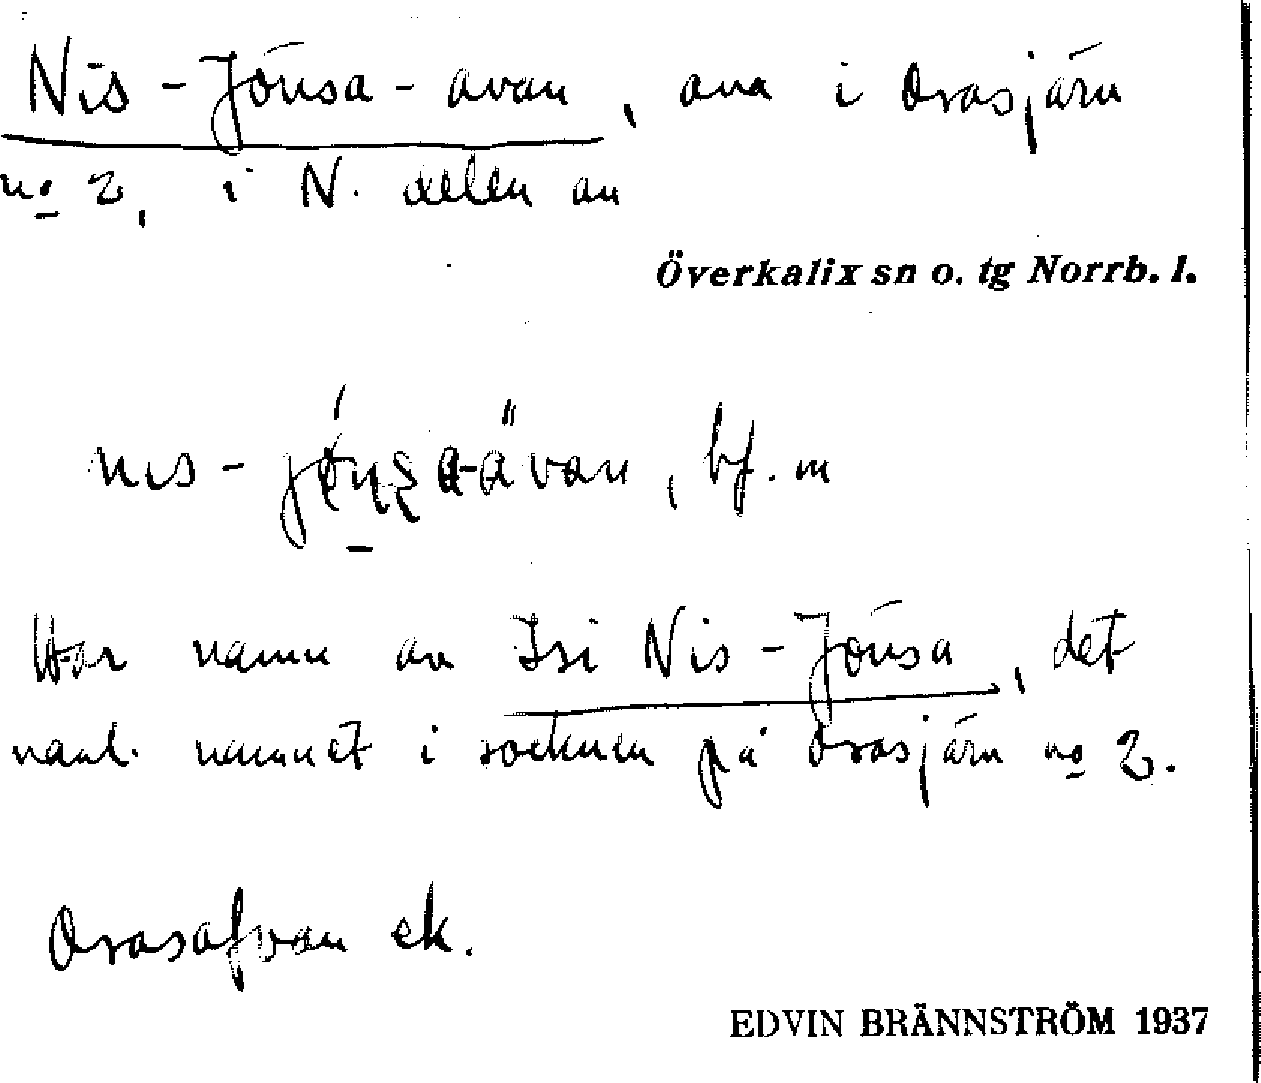 Nis-Jönsa-avan, ava i Orasjärv
no 2, i N. delen av
Överkalix sn o. tg Norrb. l.
bf. m
Har namn av Nis-Jönsa, det
vanl. namnet i socknen på Orasjärv no 2.
Orasafvan ek.
EDVIN BRÄNNSTRÖM 1937